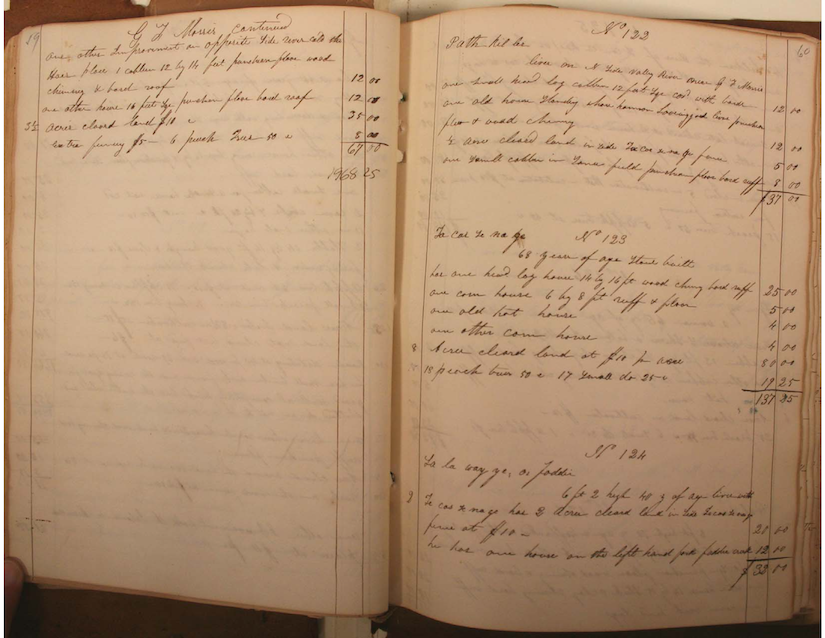 59
G T Morris Continued
one other Improvement on opposite side river cald the
place 1 cabben 12 by 14 feet puncheon floor wood
chimney & bord roof 12 00
one other house 16 feet sqe puncheon floor bord roof 12 00
3½ acre cleard land $10 c 35 00
$5 – 6 peach trees 50 c 8 00
67 00
1968 25
60
No 122
Path kil lee
lives on N side valley River G T Morris
one small hewd log cabben 12 feet sqe with bords 12 00
one old house standing whare now lives puncheon
floor & wood chimney 12 00
½ acre cleard land in side Te cas e na ge fence 5 00
one small cabben in field puncheon floor bord ruff 8 00
$37 00
No 123
Te cas e na ge
68 years of age stout built
has one hewd log house 14 by 16 ft wood chimy bord ruff 25 00
one corn house 6 by 8 ft ruff & floor 5 00
one old hot house 4 00
one other corn house 4 00
8 Acres cleard land at $10 pr acre 80 00
18 peach trees 50 c 17 small do 25 c 19 25
137 25
No 124
La la way ge, or Fodder
6 ft 2 high 40 y of age lives with
2 Te cas e na ge has 2 acres cleard land in
fence at $10 – 20 00
he has one house on the left hand fork creek 12 00
$ 33 00